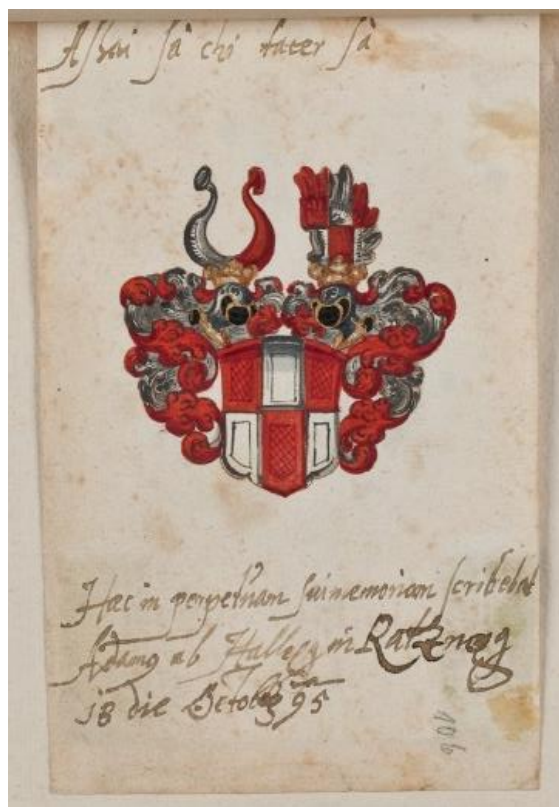 Assai sà chi tacer sà
Haec in perpetuam sui memoriam scribebat
Adamus ab Hallegg in Ratznegg
18 die Octobris 95
106